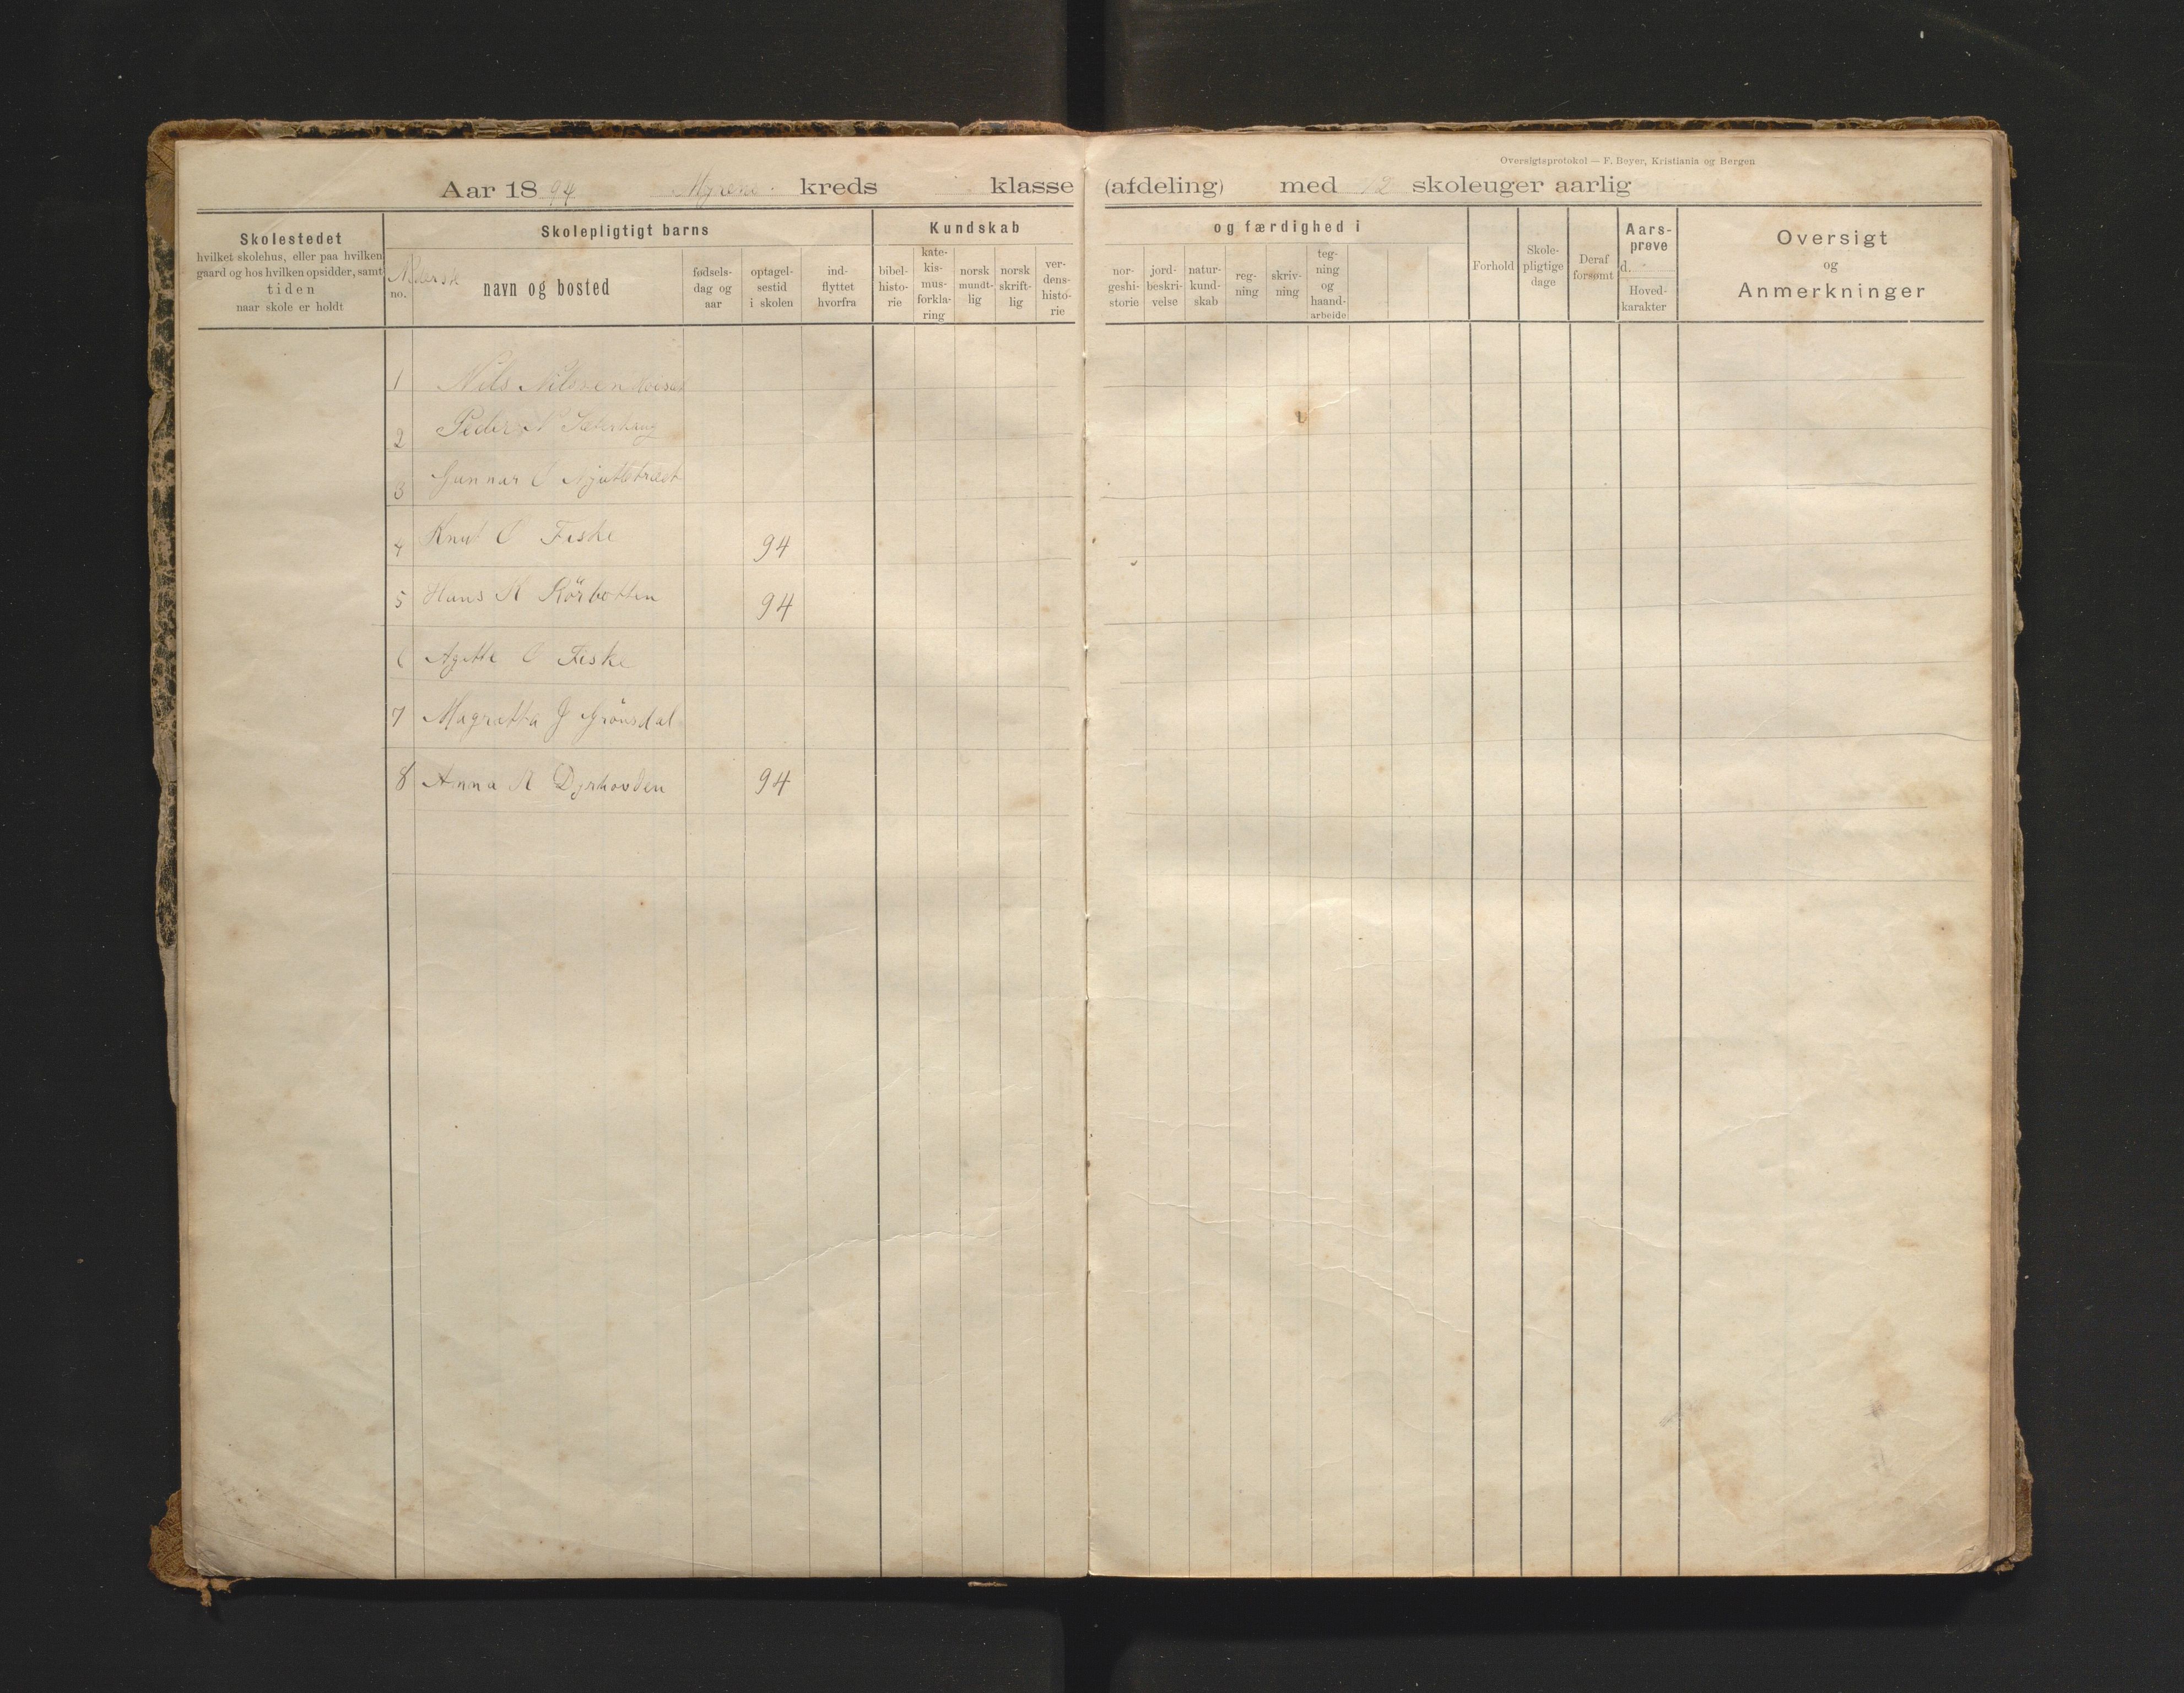 Oversigtsprotokol — F. Beyer, Kristiania og Bergen
Aar 1894 Myrene kreds klasse (afdeling) med 12 skoleuger aarlig
Skolestedet
hvilket skolehus, eller paa hvilken
gaard og hos hvilken opsidder, samt
tiden
naar skole er holdt
Skolepligtigt barns
no.
navn og bosted
fødsels-
dag og
aar
optagel-
sestid
i skolen
ind-
flyttet
hvorfra
Kundskab
bibel-
histo-
rie
kate-
kis-
mus-
forkla-
ring
norsk
mundt-
lig
norsk
skrift-
lig
ver-
dens-
histo-
rie
og færdighed i
nor-
geshi-
storie
jord-
beskri-
velse
natur-
kund-
skab
reg-
ning
skriv-
ning
teg-
ning
og
haand-
arbeide
Forhold
Skole-
pligtige
dage
Deraf
forsømt
Aars-
prøve
d.
Hoved-
karakter
Oversigt
og
Anmerkninger
1 Nils Nilsen
2 Peder N Sæterhaug
3 Gunnar O
4 Knut O Fiske 94
5 Hans K Rörbotten 94
6 Agatte O Fiske
7 Magratta J Grönsdal
8 Anna K Dyrhovden 94